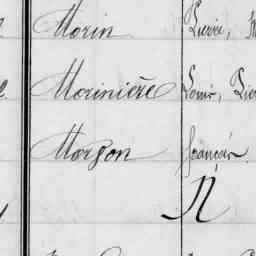 Morin Pierre,
Morinière Louis,
Marson François
N